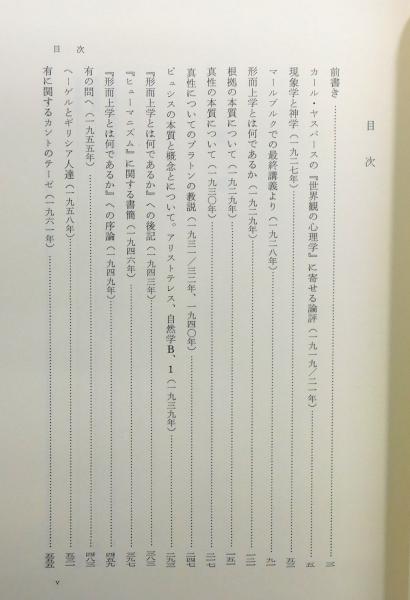 目次
前書き……三
カール・ヤスパースの『世界観の心理学』に寄せる論評（一九一九／二一年）……五
現象学と神学（一九二七年）……五三
マールブルクでの最終講義より（一九二八年）……九一
形而上学とは何であるか（一九二九年）……一二一
根拠の本質について（一九二九年）……一五一
真性の本質について（一九三〇年）……二一七
真性についてのプラトーンの教説（一九三一／三二年、一九四〇年）……二四七
ピュシスの本質と概念とについて。アリストテレス、自然学B、1（一九三九年）……二九三
『形而上学とは何であるか』への後記（一九四三年）……三八三
『ヒューマニズム』に関する書簡（一九四六年）……三九七
『形而上学とは何であるか』への序論（一九四九年）……四五九
有の問へ（一九五五年）……四八三
ヘーゲルとギリシア人達（一九五八年）……五三一
有に関するカントのテーゼ（一九六一年）……五五五
目次
v